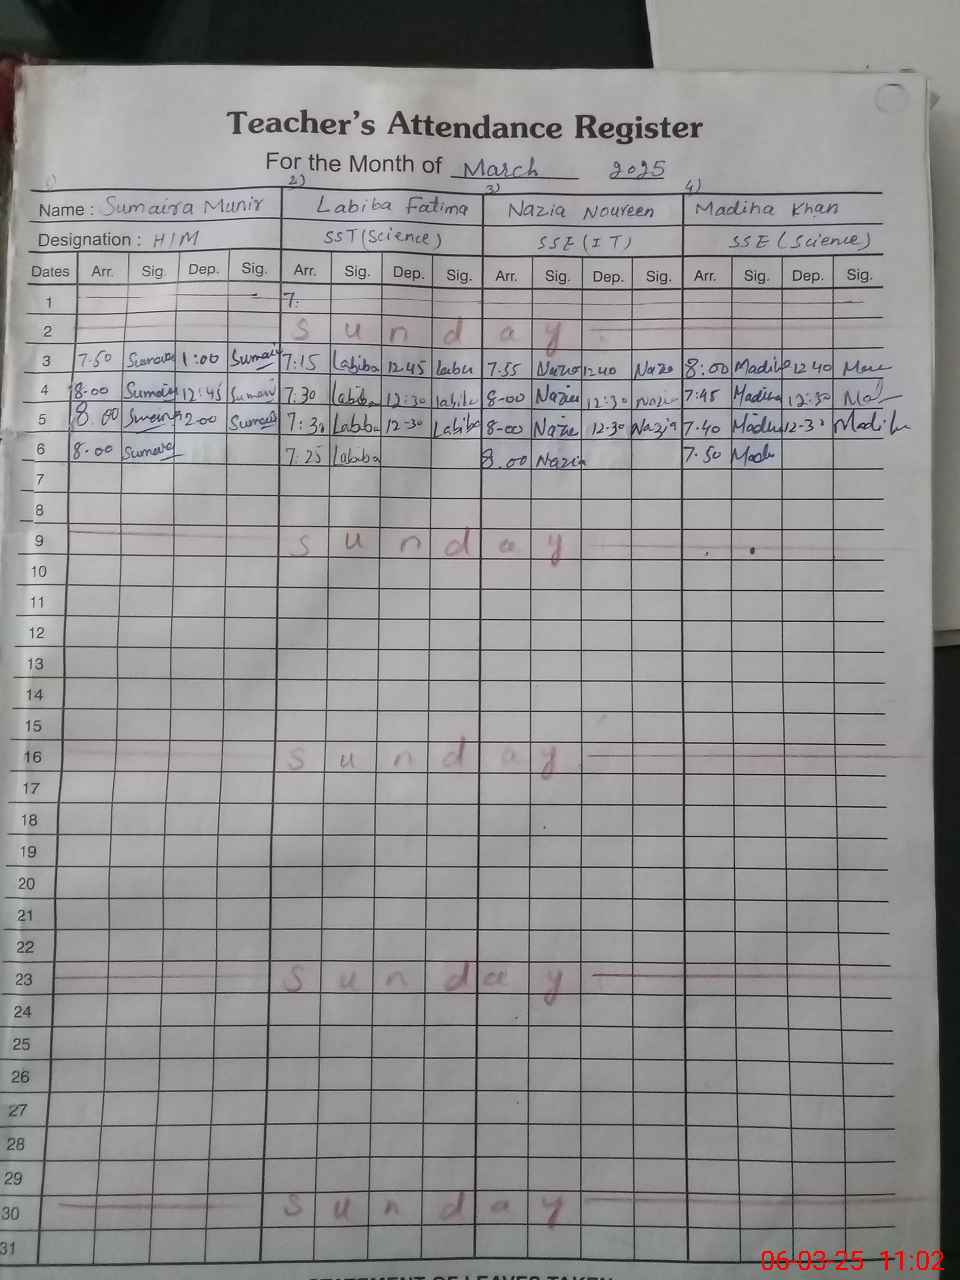 Teacher's Attendance Register
For the Month of March 2025
1) 2) 3) 4)
Name : Sumaira Munir Labiba Fatima Nazia Noureen Madiha Khan
Designation : H/M SST (Science) SSE (IT) SSE (Science)
Dates Arr. Sig. Dep. Sig. Arr. Sig. Dep. Sig. Arr. Sig. Dep. Sig. Arr. Sig. Dep. Sig.
1 7:
2 Sunday
3 7.50 1:00 7:15 Labiba 12.45 7.55 12 40 8:00 12 40
4 8-00 12:45 7:30 Labiba 12:30 8-00 Nazia 12:30 Nazia 7:45 Madiha 12:30
5 8.00 7:30 12-30 Labiba 8-00 Nazia 12-30 Nazia 7.40 Madiha
6 8-00 7:25 Labiba 8.00 Nazia 7.50
7
8
9 Sunday
10
11
12
13
14
15
16 Sunday
17
18
19
20
21
22
23 Sunday
24
25
26
27
28
29
30 Sunday
31
STATEMENT OF LEAVES TAKEN
06-03-25 11:02